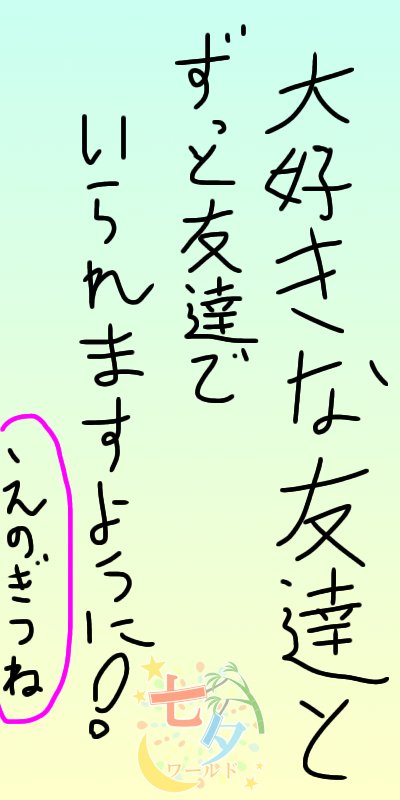 大好きな友達と
ずっと友達で
いられますように!
えのぎつね
七夕
ワールド